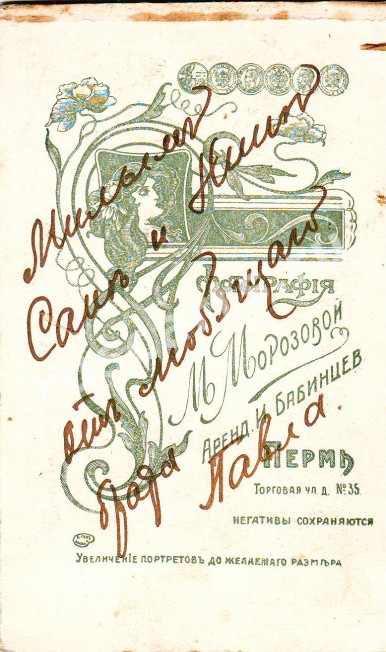 Милымъ
Санѣ и Нинѣ
отъ любящаго
брата Павла.
Фотографія
М. Морозовой
Аренд. И. Бабинцев.
Пермь
Торговая ул. д. № 35.
Негативы сохраняются
Увеличеніе портретовъ до желаемаго размѣра